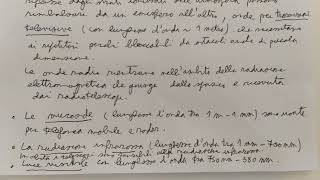 riflesse dagli strati ionizzati dell'atmosfera possono
rimbalzare da un emisfero all'altro, onde per trasmissioni
televisive (con lunghezza d'onda ~ 1 metro) che necessitano
di ripetitori perché bloccabili da ostacoli anche di piccola
dimensione.
Le onde radio rientrano nell'ambito della radiazione
elettromagnetica che giunge dallo spazio e ricevuta
dai radiotelescopi.
• Le microonde (lunghezza d'onda tra 1 m - 1 mm) sono usate
per telefonia mobile e radar.
• La radiazione infrarossa (lunghezza d'onda tra 1 mm - 700 nm)
sono sensibili alla radiazione infrarossa.
• Luce visibile con lunghezza d'onda tra 750 nm - 380 nm.